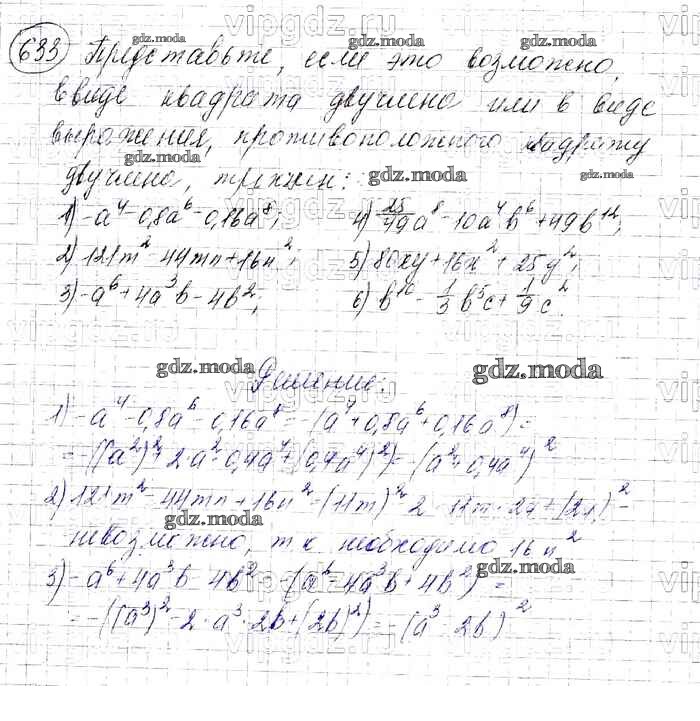 633 Представьте, если это возможно,
в виде квадрата двучлена или в виде
выражения, противоположного квадрату
двучлена, трехчлен:
1) -a⁴-0,8a⁶-0,16a⁸; 4) 25/49 a⁸-10a⁴b⁶+49b¹²;
2) 121m²-44mn+16n²; 5) 80xy+16x²+25y²;
3) -a⁶+4a³b-4b²; 6) b¹⁰-1/3 b⁵c+1/9 c².
Решение:
1) -a⁴-0,8a⁶-0,16a⁸=-(a⁴+0,8a⁶+0,16a⁸)=
=-((a²)²+2·a²·0,4a⁴+(0,4a⁴)²)=-(a²+0,4a⁴)²
2) 121m²-44mn+16n²=(11m)²-2·11m·2n+(2n)²-
невозможно, т к необходимо 16n²
3) -a⁶+4a³b-4b²=-(a⁶-4a³b+4b²)=
=-((a³)²-2·a³·2b+(2b)²)=-(a³-2b)²
gdz.moda
vipgdz.ru